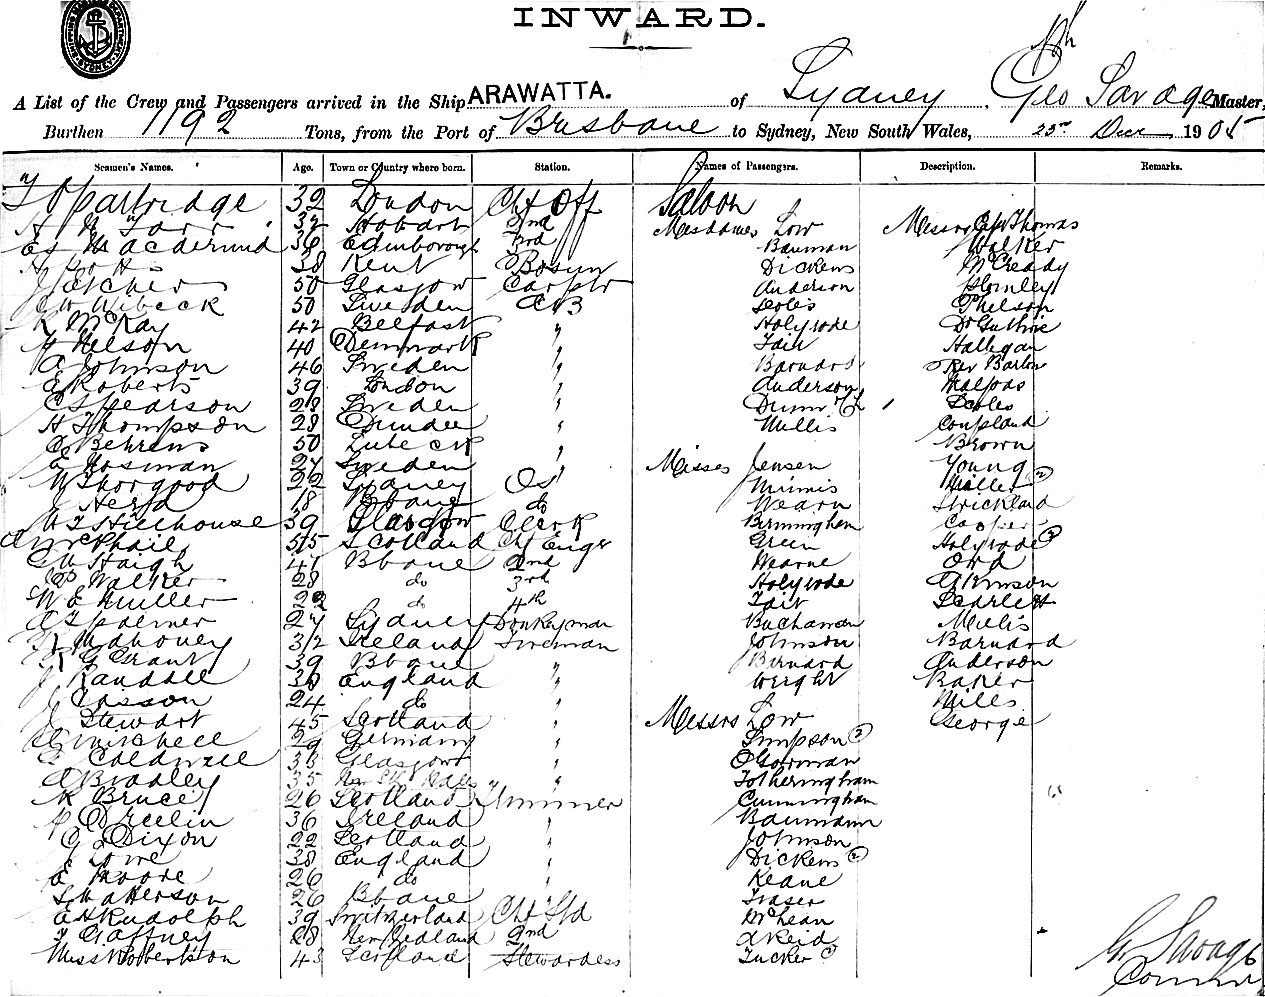 INWARD.
A List of the Crew and Passengers arrived in the Ship ARAWATTA. of Sydney, Geo Savage Master,
Burthen 1192 Tons, from the Port of Brisbane to Sydney, New South Wales, 23rd Decr 1905
Seamen's Names. Age. Town or Country where born. Station. Names of Passengers. Description. Remarks.
T O Partridge 32 London Chf Off Saloon
32 Hobart 2nd Mesdames Low Messrs Thomas
MacDermid 36 Edinborough 3rd Bauman Walker
38 Kent Bosun Dickens McCready
50 Glasgow Carptr Anderson
Wibeck 50 Sweden AB Scoles Phelson
R McKay 42 Belfast " Holyrode Dr Guthrie
Nelson 40 Denmark " Tait Halligan
A Johnson 46 Sweden " Barnard Rev Barton
E Roberts 39 London " Anderson Malpas
C S Pearson 28 Sweden " Dunn Scoles
H Thompson 28 Dundee " Willis Coupland
Behrens 50 Lubeck " Brown
Mosman 27 Sweden " Misses Jensen Young
W Thorgood 22 Sydney OS Mimis Miller 2
J Herd 18 Bbane do Wearn Strickland
Hillhouse 39 Glasgow Clerk Birmingham Cooper
McPhail 55 Scotland Chf Engr Green Holyrode 2
Haigh 47 Bbane 2nd Wearne Ord
Walker 28 do 3rd Holyrode Atkinson
W E Muller 22 do 4th Tait Scarlett
27 Sydney Donkeyman Buchanan Mulis
Mahoney 32 Ireland Fireman Johnson Barnard
G Grant 39 Bbane " Barnard Anderson
J Randall 38 England " Wright Baker
24 do " Miles
J Stewart 45 Scotland " Messrs Low George
Mitchell 29 Germany " Simpson 2
Caldwell 36 Glasgow " O'Gorman
A Bradley 35 New Sth Wales " Fotheringham
R Bruce 26 Scotland Trimmer Cunningham
Breelin 36 Ireland " Baumann
G Dixon 22 Scotland " Johnson
J Lowe 38 England " Dickens 2
E Moore 26 do " Keane
Matterson 26 Bbane " Fraser
A H Rudolph 39 Switzerland Chf Std McLean
T Gaffney 28 New Zealand 2nd A Reid
Miss Robertson 43 Scotland Stewardess Tucker
G Savage
Comr